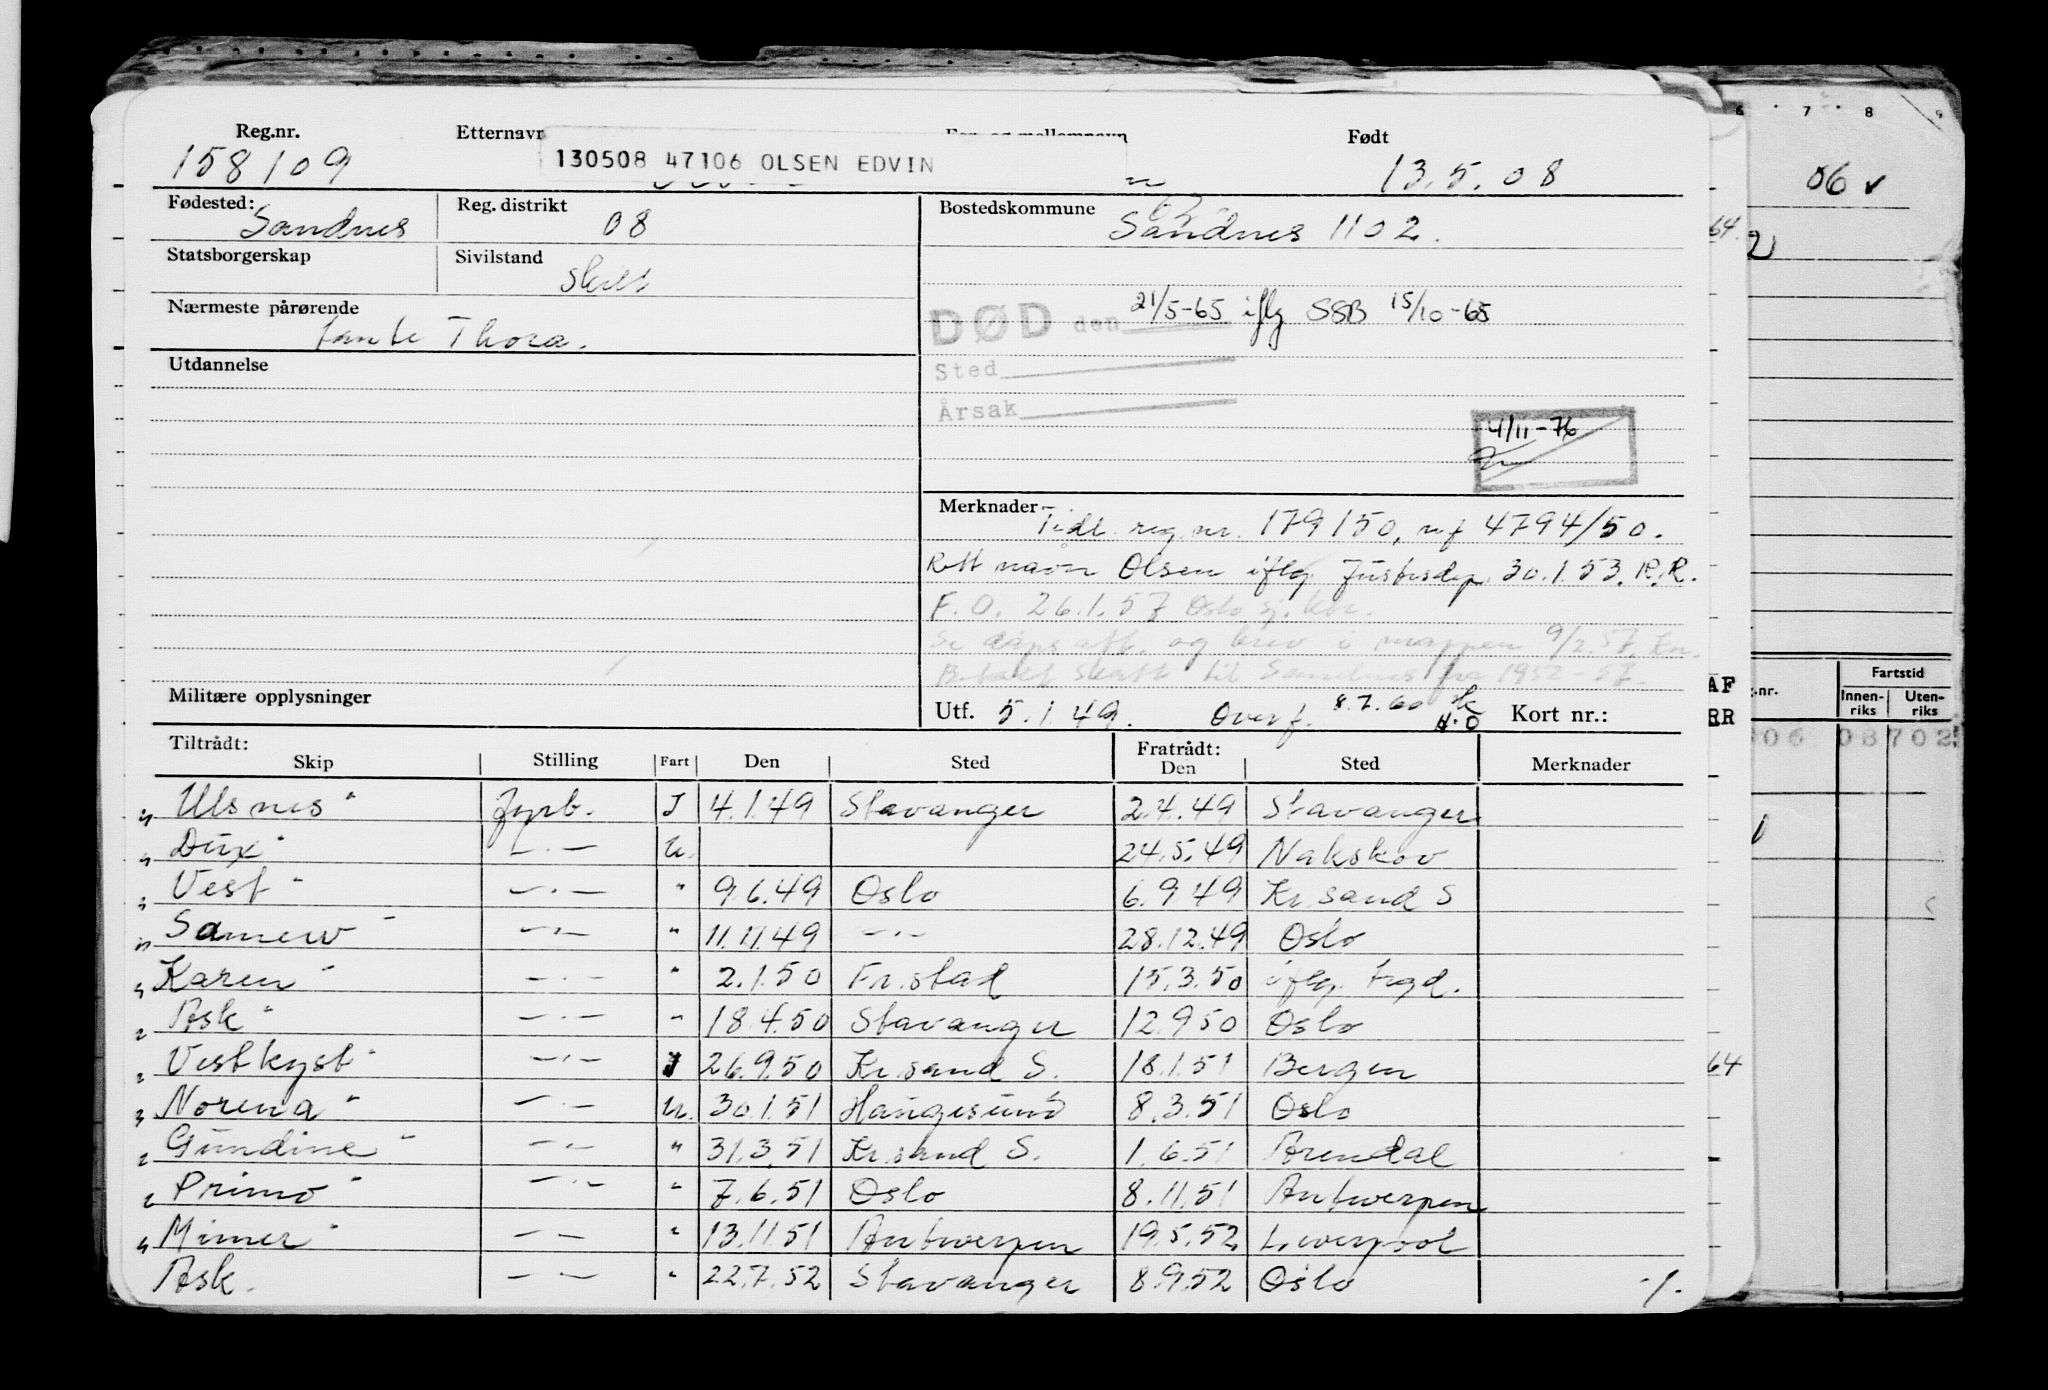 Reg.nr. Etternavn For- og mellomnavn Født
158109 130508 47106 OLSEN EDVIN 13.5.08
Fødested: Sandnes Reg. distrikt 08 Bostedskommune Sandnes 1102.
Statsborgerskap Sivilstand skilt
Nærmeste pårørende tante Thora.
DØD den 21/5-65 iflg SSB 15/10-65
Utdannelse
Sted
Årsak
4/11-76
Merknader Tidl. reg. nr. 179150, mf 4794/50.
Rett navn Olsen iflg. Justisdep. 30.1.53. R.R.
F.O. 26.1.57 Oslo sj.ktr.
Se dåpsatt. og brev i mappen 9/2.57. Kn.
Betalt skatt til Sandnes fra 1952-57.
Militære opplysninger
Utf. 5.1.49. Overf. 8.7.60 H.O Kort nr.:
Tiltrådt: Fratrådt:
Skip Stilling Fart Den Sted Den Sted Merknader
"Ulsnes" fyrb. I 4.1.49 Stavanger 2.4.49 Stavanger
"Dux" —·— U. 24.5.49 Nakskov
"Vest" —·— " 9.6.49 Oslo 6.9.49 Kr.sand S
"Samew" —·— " 11.11.49 —·— 28.12.49 Oslo
"Karen" —·— " 2.1.50 Fr.stad 15.3.50 iflg. trgd.
"Ask" —·— " 18.4.50 Stavanger 12.9.50 Oslo
"Vestkyst" —·— I 26.9.50 Kr.sand S. 18.1.51 Bergen
"Norena" —·— U. 30.1.51 Haugesund 8.3.51 Oslo
"Gundine" —·— " 31.3.51 Kr.sand S. 1.6.51 Arendal
"Primo" —·— " 7.6.51 Oslo 8.11.51 Antwerpen
"Mimer" — — " 13.11.51 Antwerpen 19.5.52 Liverpool
Ask. —·— " 22.7.52 Stavanger 8.9.52 Oslo ·/.
6 7 8 9
06 v
64.
2
AF
ER
.nr. Fartstid
Innen-riks Uten-riks
06 08702
64